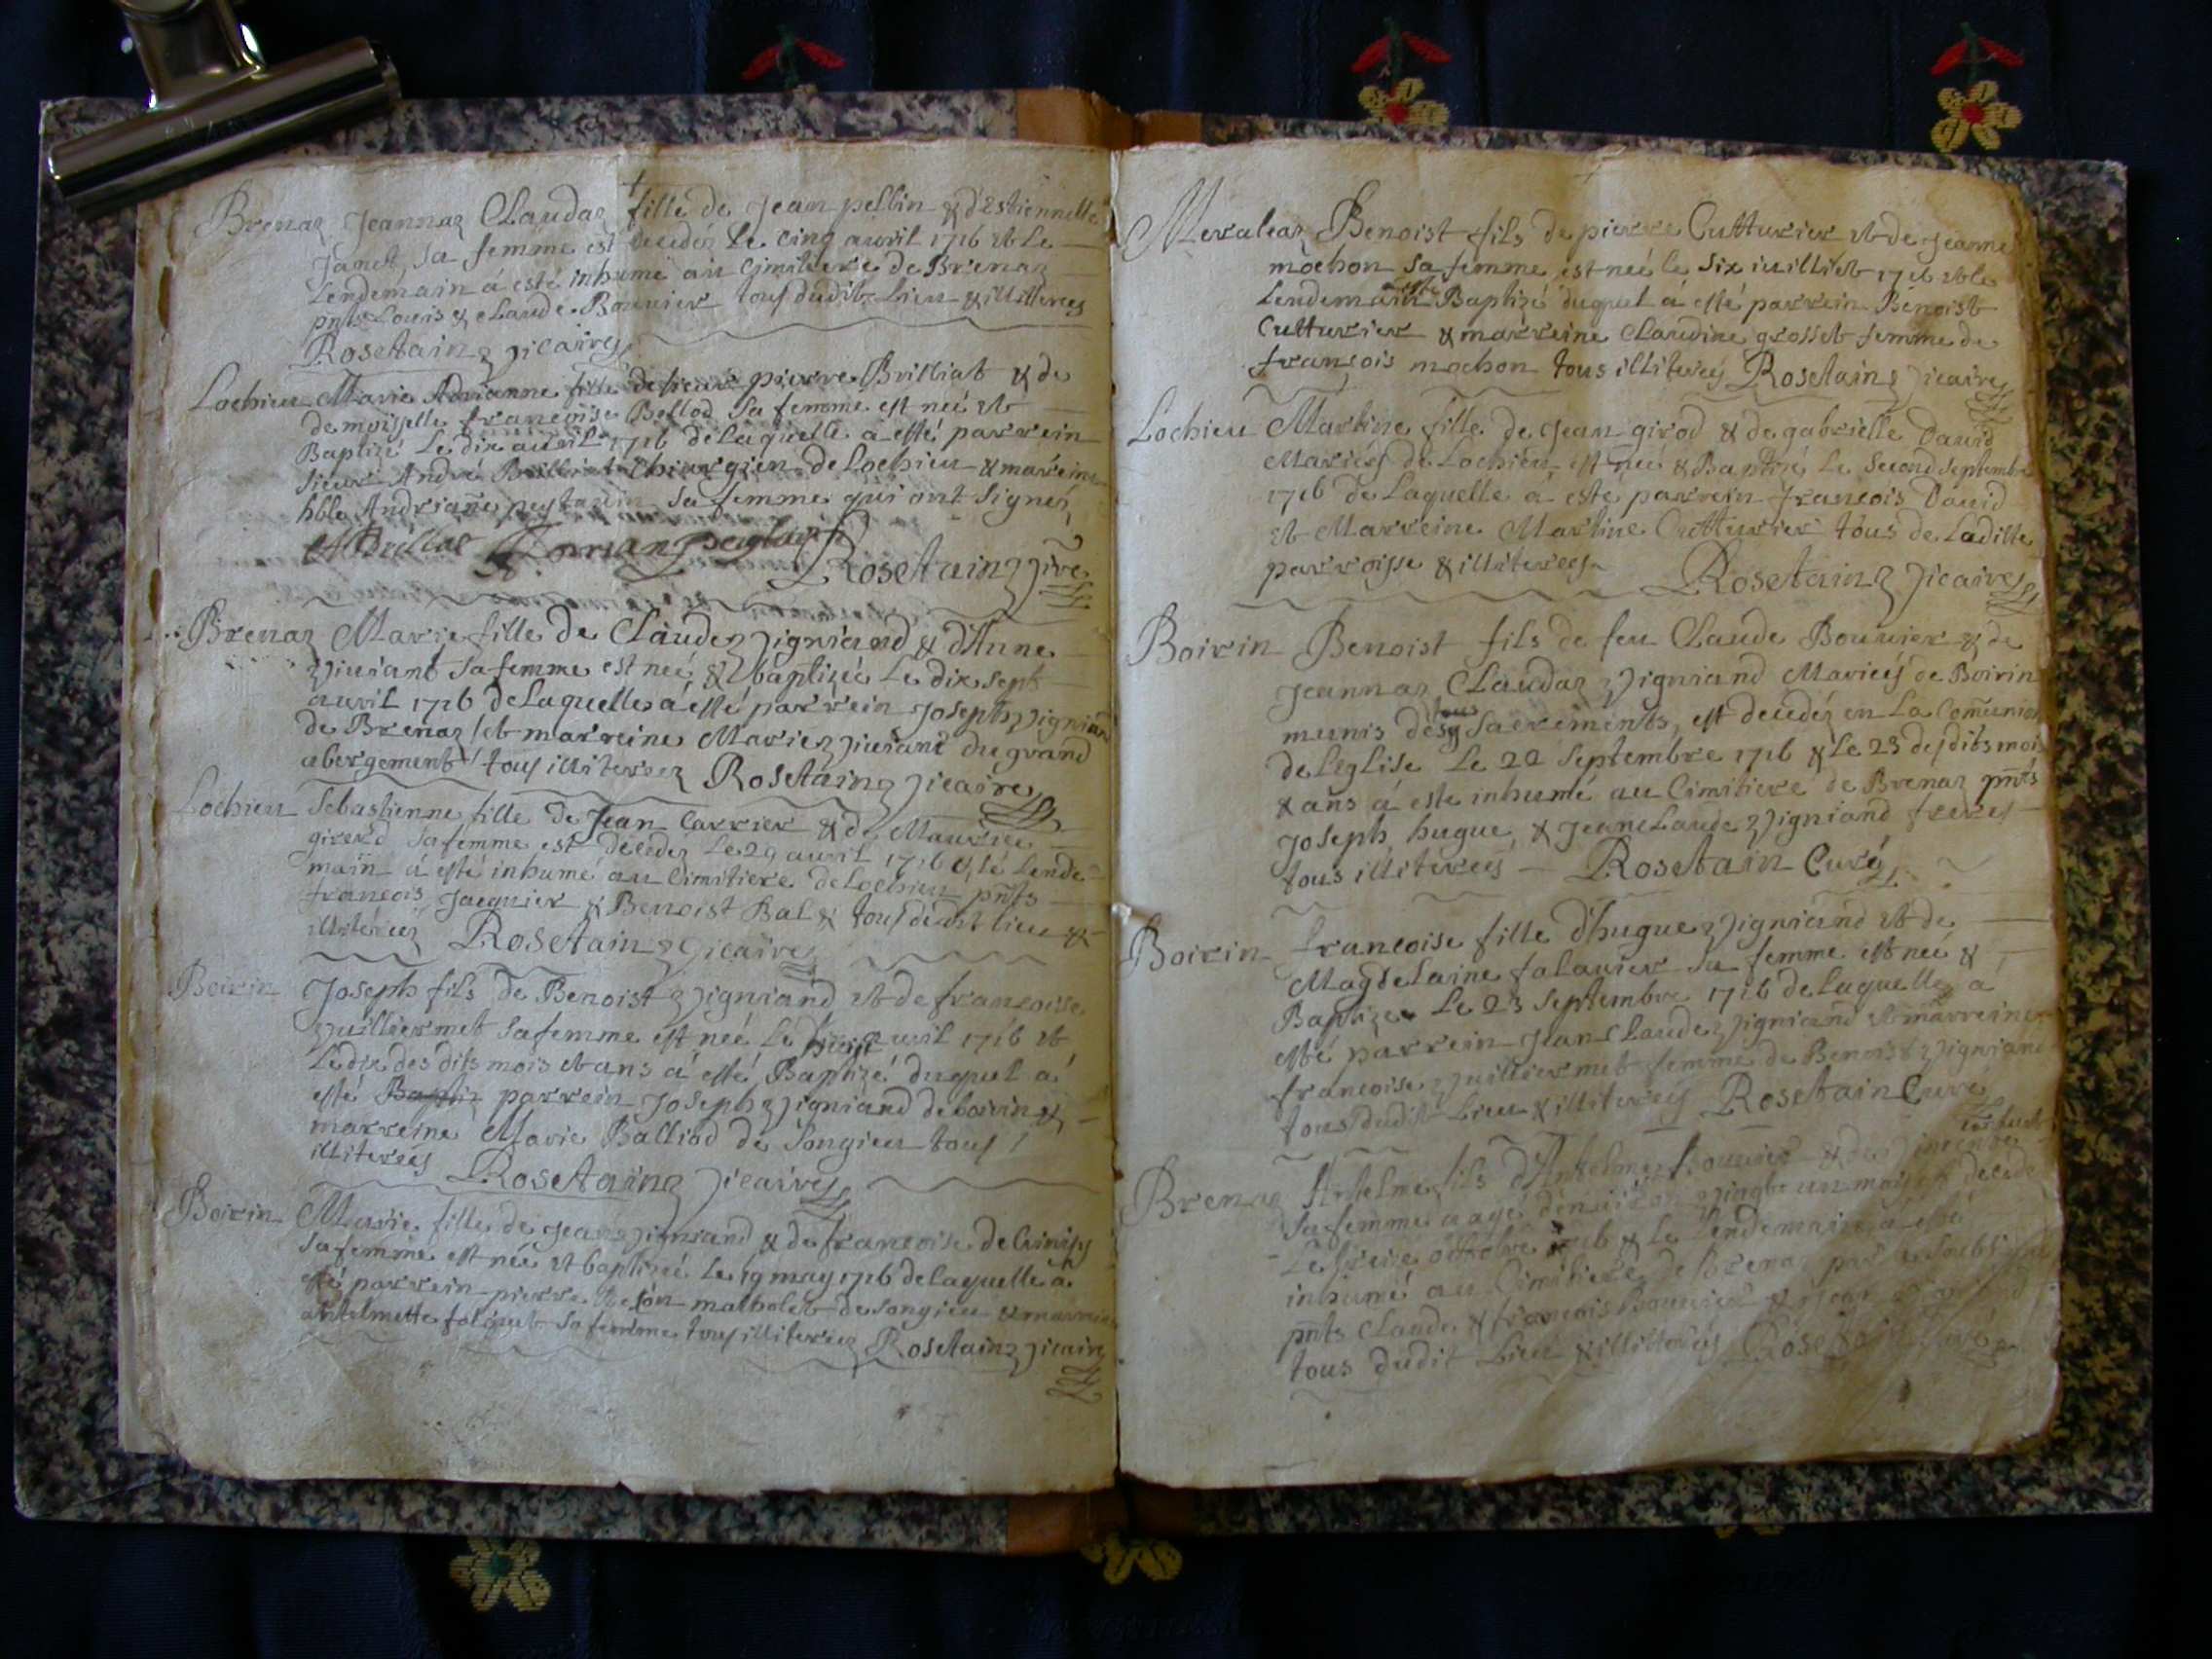 Brenaz Jeannaz Claudaz fille de Jean pellin & d'Estiennette
Janet, sa femme est decedéz le cinq avril 1716 et le
Lendemain à esté inhumé au Cimitiere de Brenaz
pnts Louis & Claude Bouvier tous dudit Lieu & illiterees
Rosetain vicaire
Lochieu Marie Adrianne fille de sieur pierre Brilliat & de
demoisselle francoise Bellod sa femme est neé et
Baptizé Le dix avril 1716 de laquelle a esté parrein
sieur André Chirurgien de Lochieu & mareine
hble Andrianne sa femme qui ont signéz
Rosetain vire
Brenaz Marie fille de Claude vigniand & d'Anne
viviant sa femme est neé & baptizeé Le dix sept
avril 1716 de Laquelle à esté parrein Joseph vigniand
de Brenaz et marreine Marie viviant du grand
abergement tous illiterez Rosetain vicaire
Lochieu Sebastienne fille de Jean Carrier & de Maurice
girerd sa femme est decedez Le 29 avril 1716 & le Lende
main à esté inhumé au Cimitiere de Lochieu pnts
francois Jacquier & Benoist Bal tous dudit lieu &
illitereez Rosetain vicaire
Boirin Joseph fils de Benoist vigniand et de francoise
vuilliermet sa femme est neé Le avril 1716 et
Le dix des dits mois et ans à esté Baptizé duquel a
esté Baptiz parrein Joseph vigniand de boirin &
marreine Marie Balliod de Songieu tous
illiterees Rosetain vicaire
Boirin Marie fille de Jean vigniand & de francoise de
sa femme est neé et baptizeé Le 19 may 1716 de laquelle à
esté parrein pierre de Songieu & marreine
antelmette sa femme tous illiterez Rosetain vicaire
Benoist fils de pierre Cutturier et de Jeanne
mochon sa femme est neé le six iuilliet 1716 et le
Lendemain esté Baptizé duquel à esté parrein Benoist
Cutturier & marreine Claudine grosset femme de
françois mochon tous illiterez Rosetain vicaire
Lochieu Martine fille de Jean girod & de gabrielle David
Mariéz de Lochieu est neé & Baptizé Le second septembre
1716 de Laquelle à esté parrein francois David
et Marreine Martine Cutturier tous de Ladite
parroisse & illiterees Rosetain vicaire
Boirin Benoist fils de feu Claude Bouvier & de
Jeannaz Claudaz vigniand Marieés de Boirin
munis des tous sacrements, est decedéz en La Comunion
de L'eglise Le 22 septembre 1716 & Le 23 desdits mois
& ans à esté inhumé au Cimitiere de Brenaz pnts
Joseph hugue, & Jean Claude vigniand freres
tous illiterees Rosetain Curé
Boirin francoise fille d'hugue vigniand et de
Magdelaine falavier sa femme est neé &
Baptizee Le 23 septembre 1716 de Laquelle à
esté parrein Jean Claude vigniand et marreine
francoise vuilliermet femme de Benoist vigniand
tous dudit Lieu & illiterees Rosetain Curé
Brenaz Antelme fils d'Antelme Bouvier & de
sa femme aagé d'enuiron vingt un mois est decedé
Le octobre 1716 & Le Lendemain a esté
inhumé au Cimitiere de Brenaz par
pnts Claude & francois Bouvier
tous dudit Lieu & illiterees Rosetain Curé